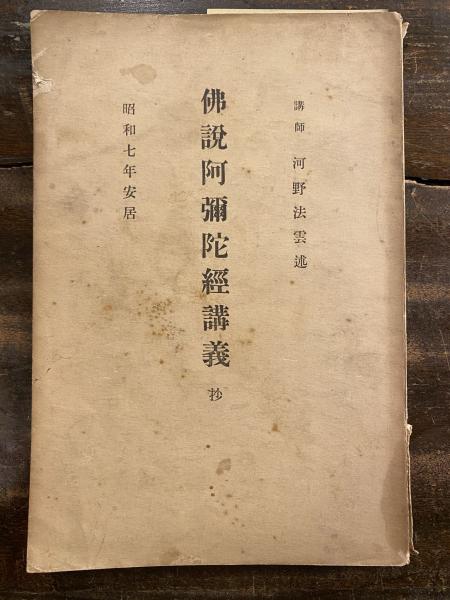 講師 河野法雲述
佛說阿彌陀經講義抄
昭和七年安居